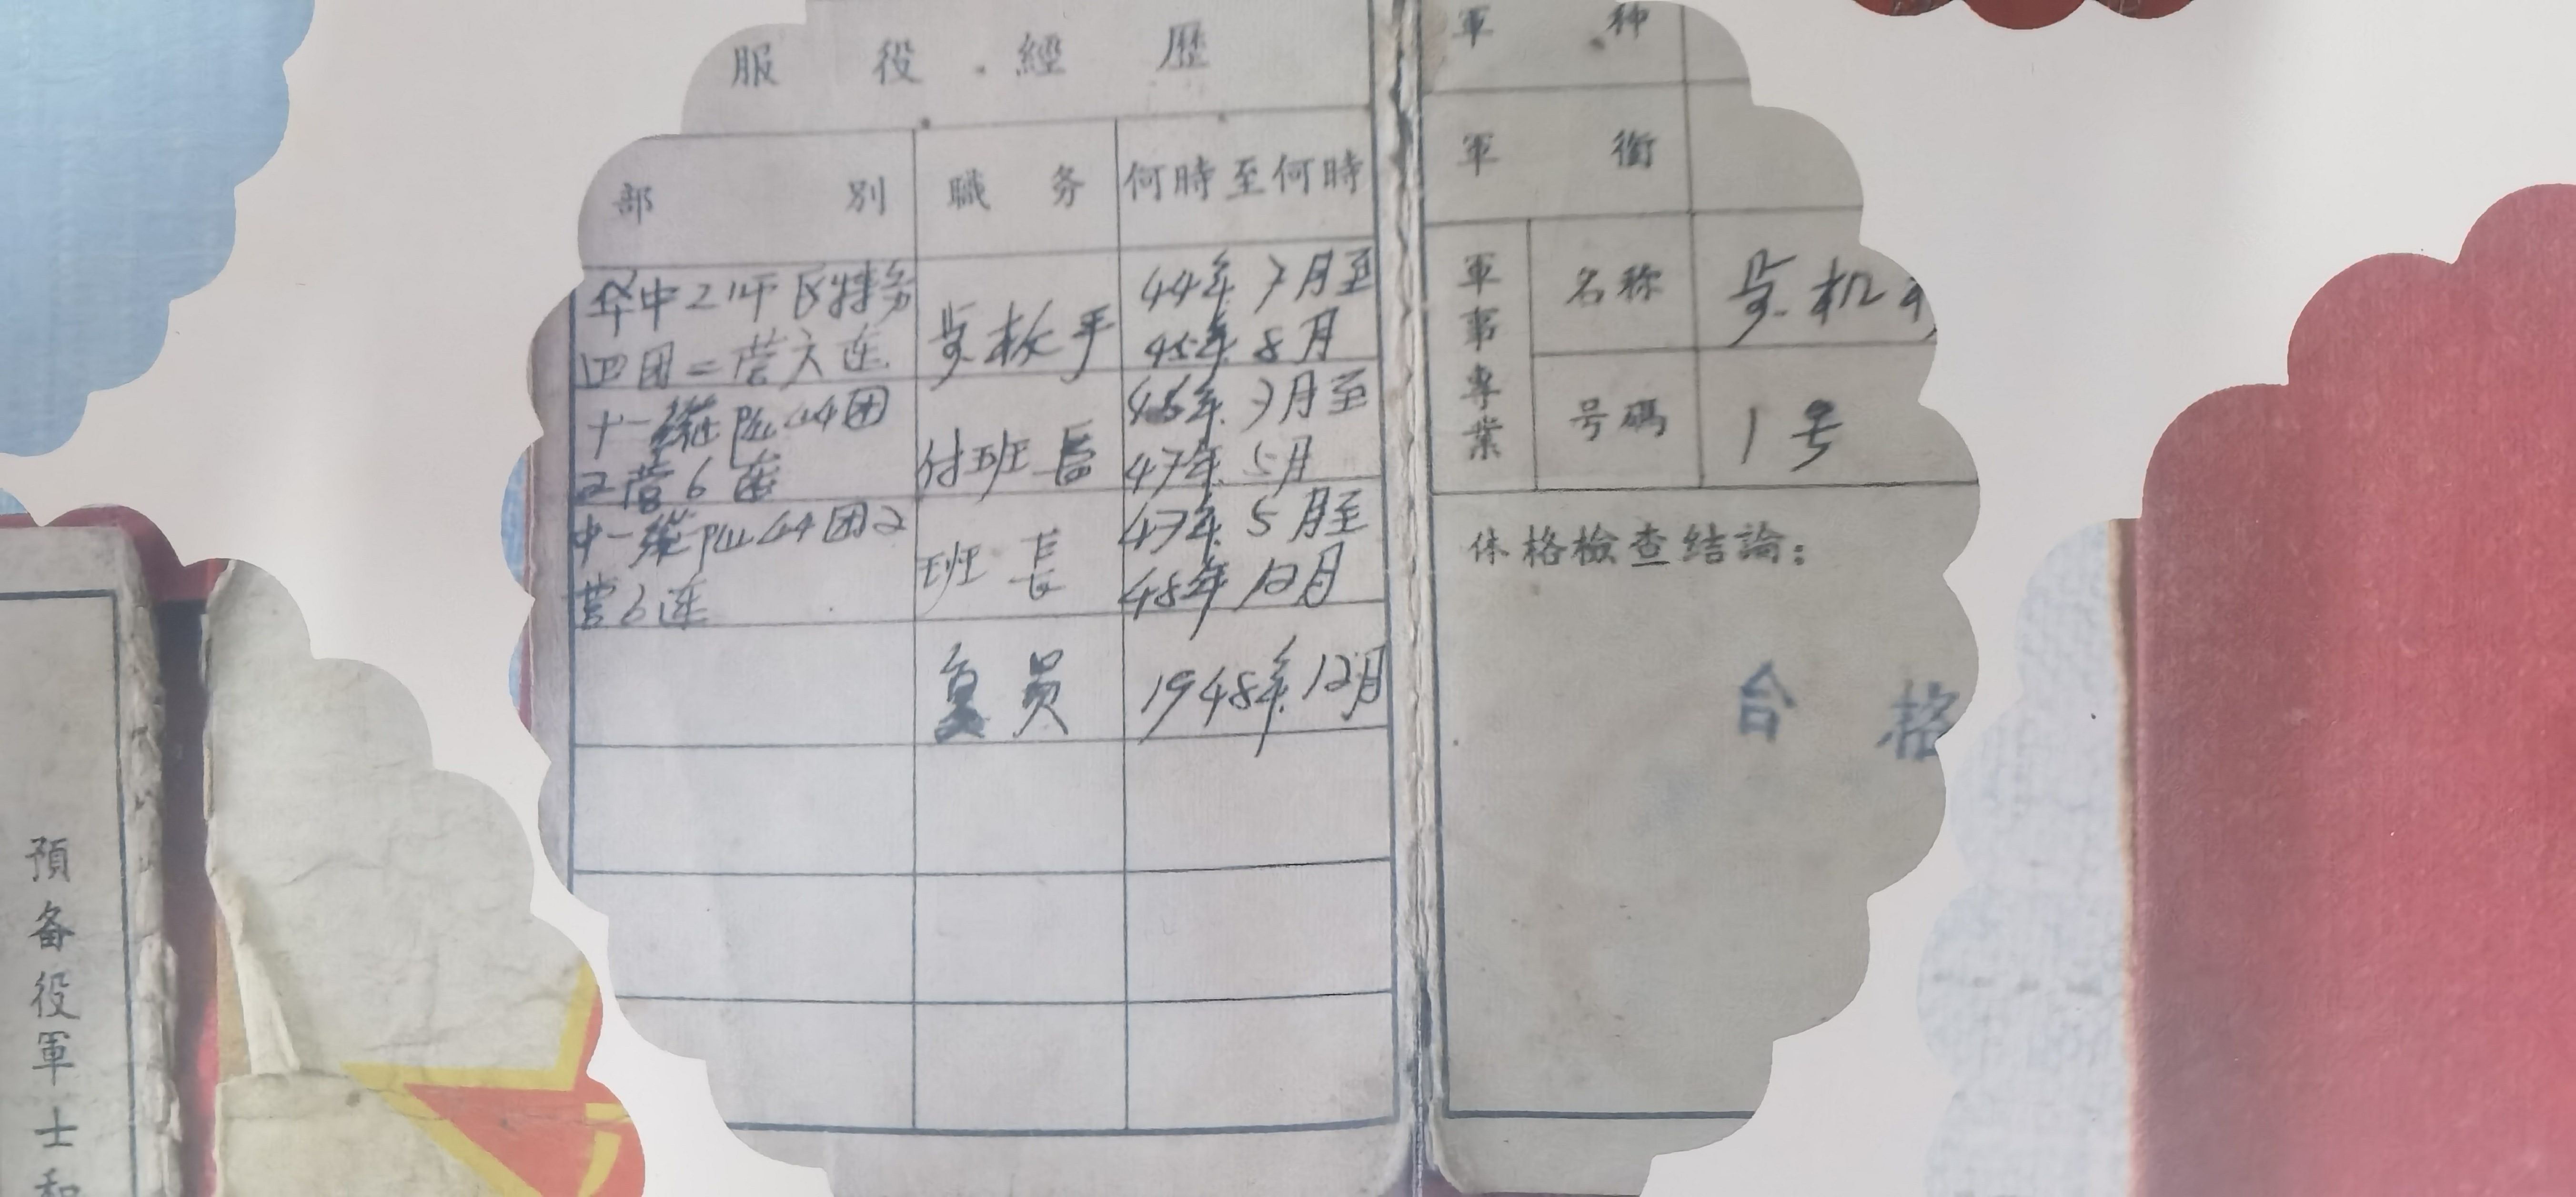 服役經歷
部別 職务 何時至何時
华中2军区特务
四团二营六连
44年7月至
45年8月
十一纵队44团
2营6连
付班長
46年3月至
47年5月
十一纵队44团2
营6连
班長
47年5月至
48年12月
复員 1948年12月
軍種
軍銜
軍事專業
名称
机
号碼 1号
体格檢查结論:
合格
預备役軍士和